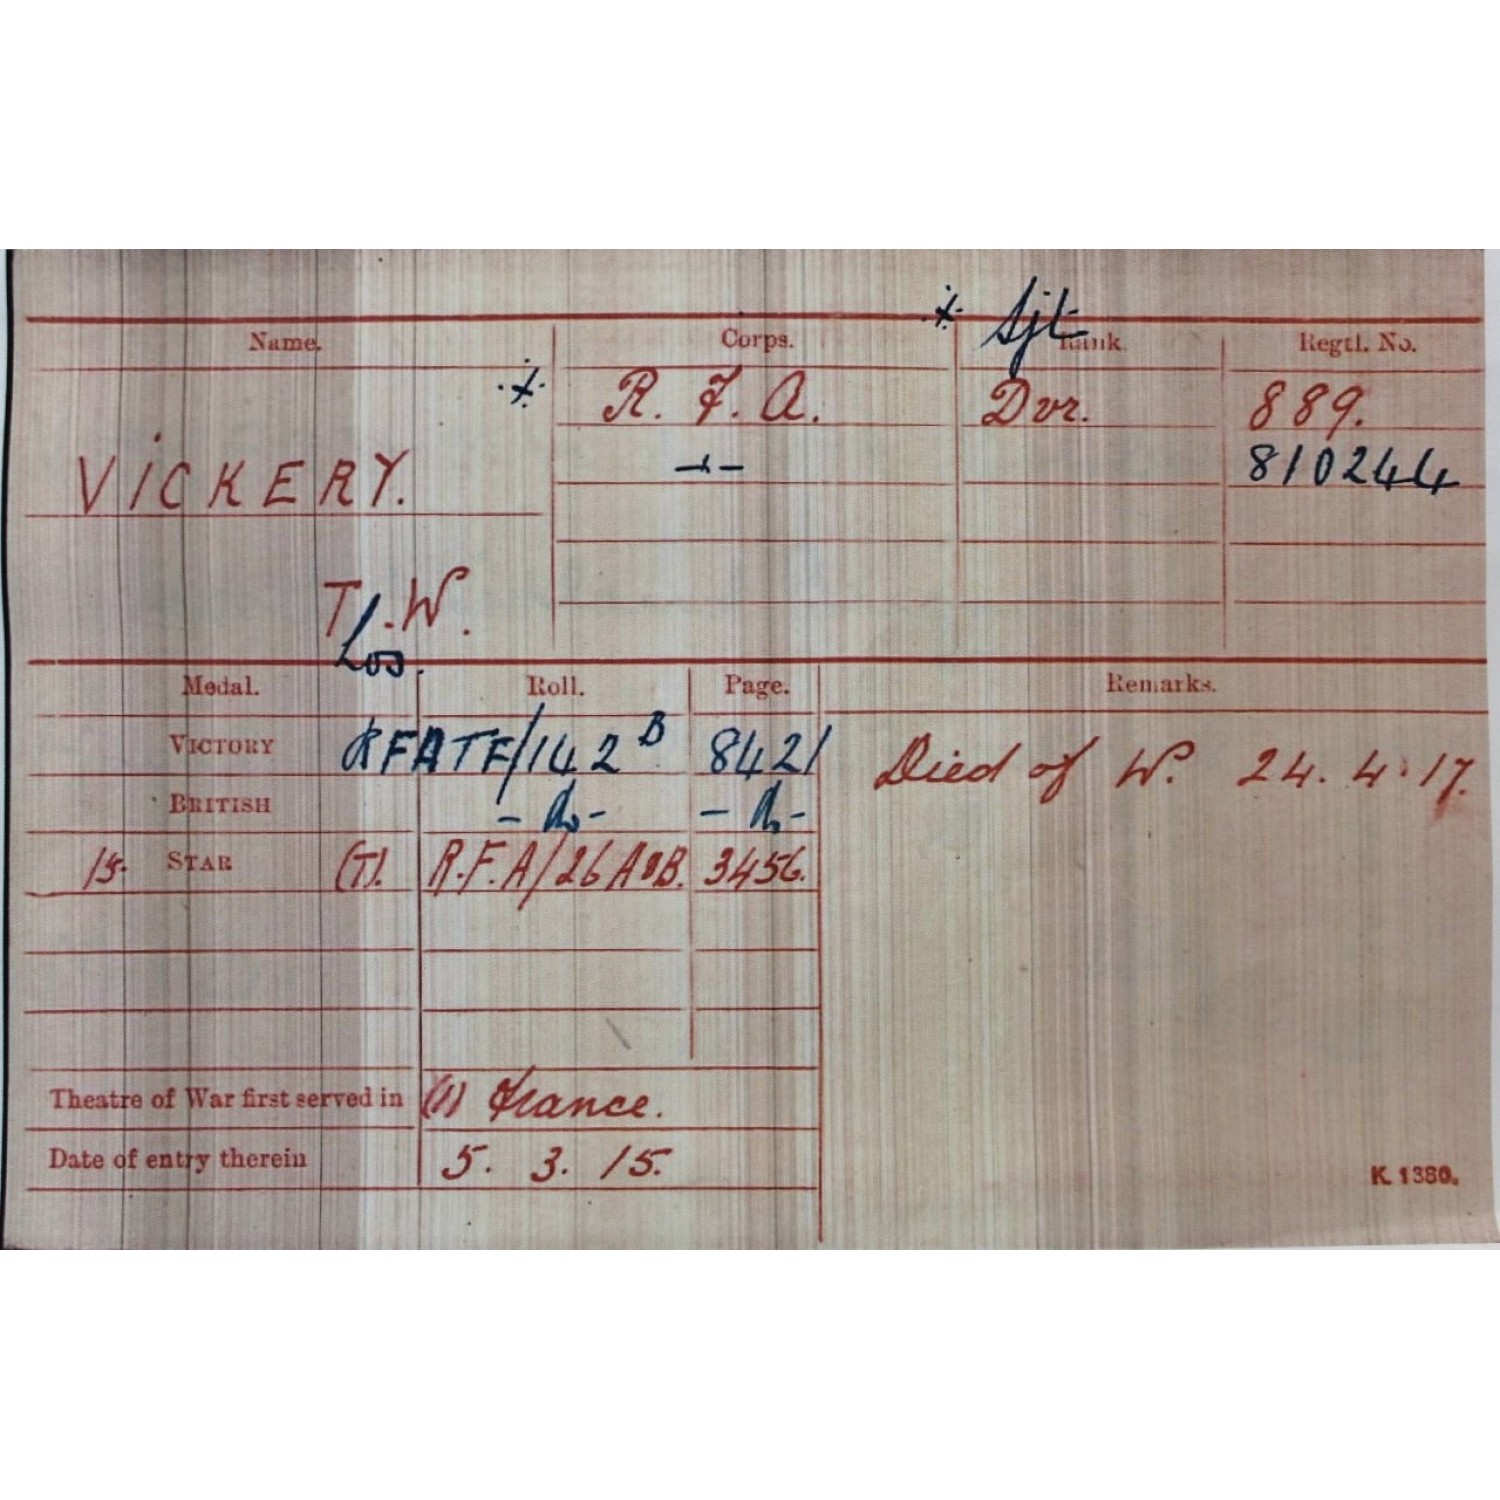 Name. Corps. Rank. Regtl. No.
Sjt
R. F. A. Dvr. 889.
VICKERY. 810244
T. W.
Medal. Roll. Page. Remarks.
VICTORY RFATF/142 B 8421 Died of W. 24. 4. 17.
BRITISH - do - - do -
15 STAR (T). R.F.A/26 A&B. 3456.
Theatre of War first served in (1) France.
Date of entry therein 5. 3. 15.
K. 1380.